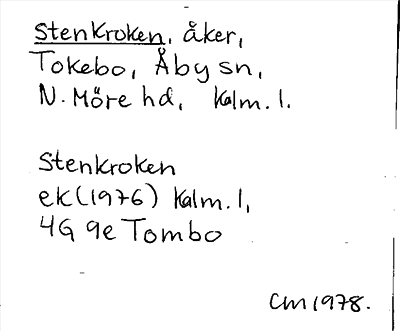 Stenkroken, åker,
Tokebo, Åby sn,
N. Möre hd, Kalm. l.
Stenkroken
ek (1976) Kalm. l,
4G 9e Tombo
CM 1978.